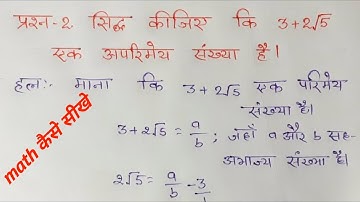 प्रश्न-2. सिद्ध कीजिए कि 3+2√5
एक अपरिमेय संख्या है।
हल:- माना कि 3+2√5 एक परिमेय
संख्या है।
3+2√5 = a/b ; जहाँ a और b सह-
अभाज्य संख्या है।
2√5 = a/b - 3/1
math कैसे सीखे